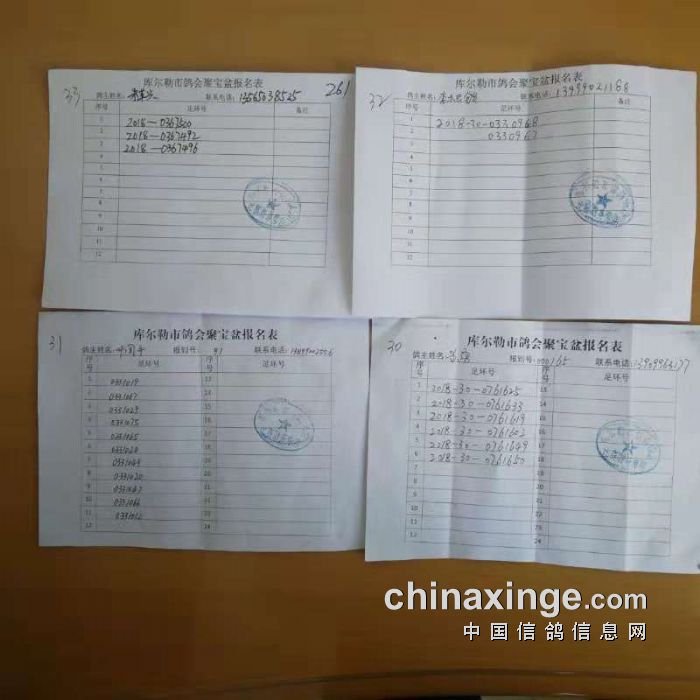 33
库尔勒市鸽会聚宝盆报名表
261
鸽主姓名:
联系电话: 13565038525
序号 足环号 备注
1 2018—0367500
2 2018—0367492
3 2018—0367496
4
5
6
7
8
9
10
11
12
32
库尔勒市鸽会聚宝盆报名表
鸽主姓名:
联系电话: 13999021188
序号 足环号 备注
1 2018-30-0330968
2 0330967
3
4
5
6
7
8
9
10
11
12
31
库尔勒市鸽会聚宝盆报名表
鸽主姓名: 报到号: 联系电话:
序号 足环号 序号 足环号
1 0331019 13
2 14
3 0331029 15
4 0331075 16
5 0331065 17
6 18
7 19
8 0331020 20
9 21
10 0331066 22
11 23
12 24
30
库尔勒市鸽会聚宝盆报名表
鸽主姓名: 报到号: 000165 联系电话:
序号 足环号 序号 足环号
1 2018-30-0761625 13
2 2018-30-0761633 14
3 2018-30-0761619 15
4 2018-30-0761602 16
5 2018-30-0761649 17
6 2018-30-0761650 18
7 19
8 20
9 21
10 22
11 23
12 24
chinaxinge.com
中国信鸽信息网